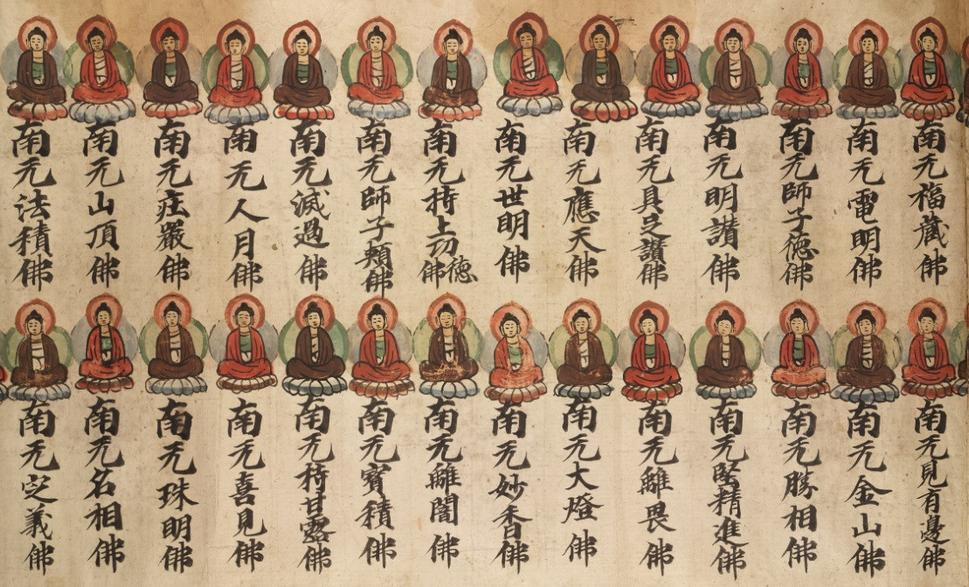 南无福藏佛
南无電明佛
南无師子德佛
南无明讃佛
南无具足讃佛
南无應天佛
南无世明佛
南无持上功德佛
南无師子頬佛
南无滅過佛
南无人月佛
南无庄嚴佛
南无山頂佛
南无法積佛
南无見有邊佛
南无金山佛
南无勝相佛
南无堅精進佛
南无離畏佛
南无大燈佛
南无妙香佛
南无離闇佛
南无寳積佛
南无持甘露佛
南无喜見佛
南无珠明佛
南无名相佛
南无定義佛